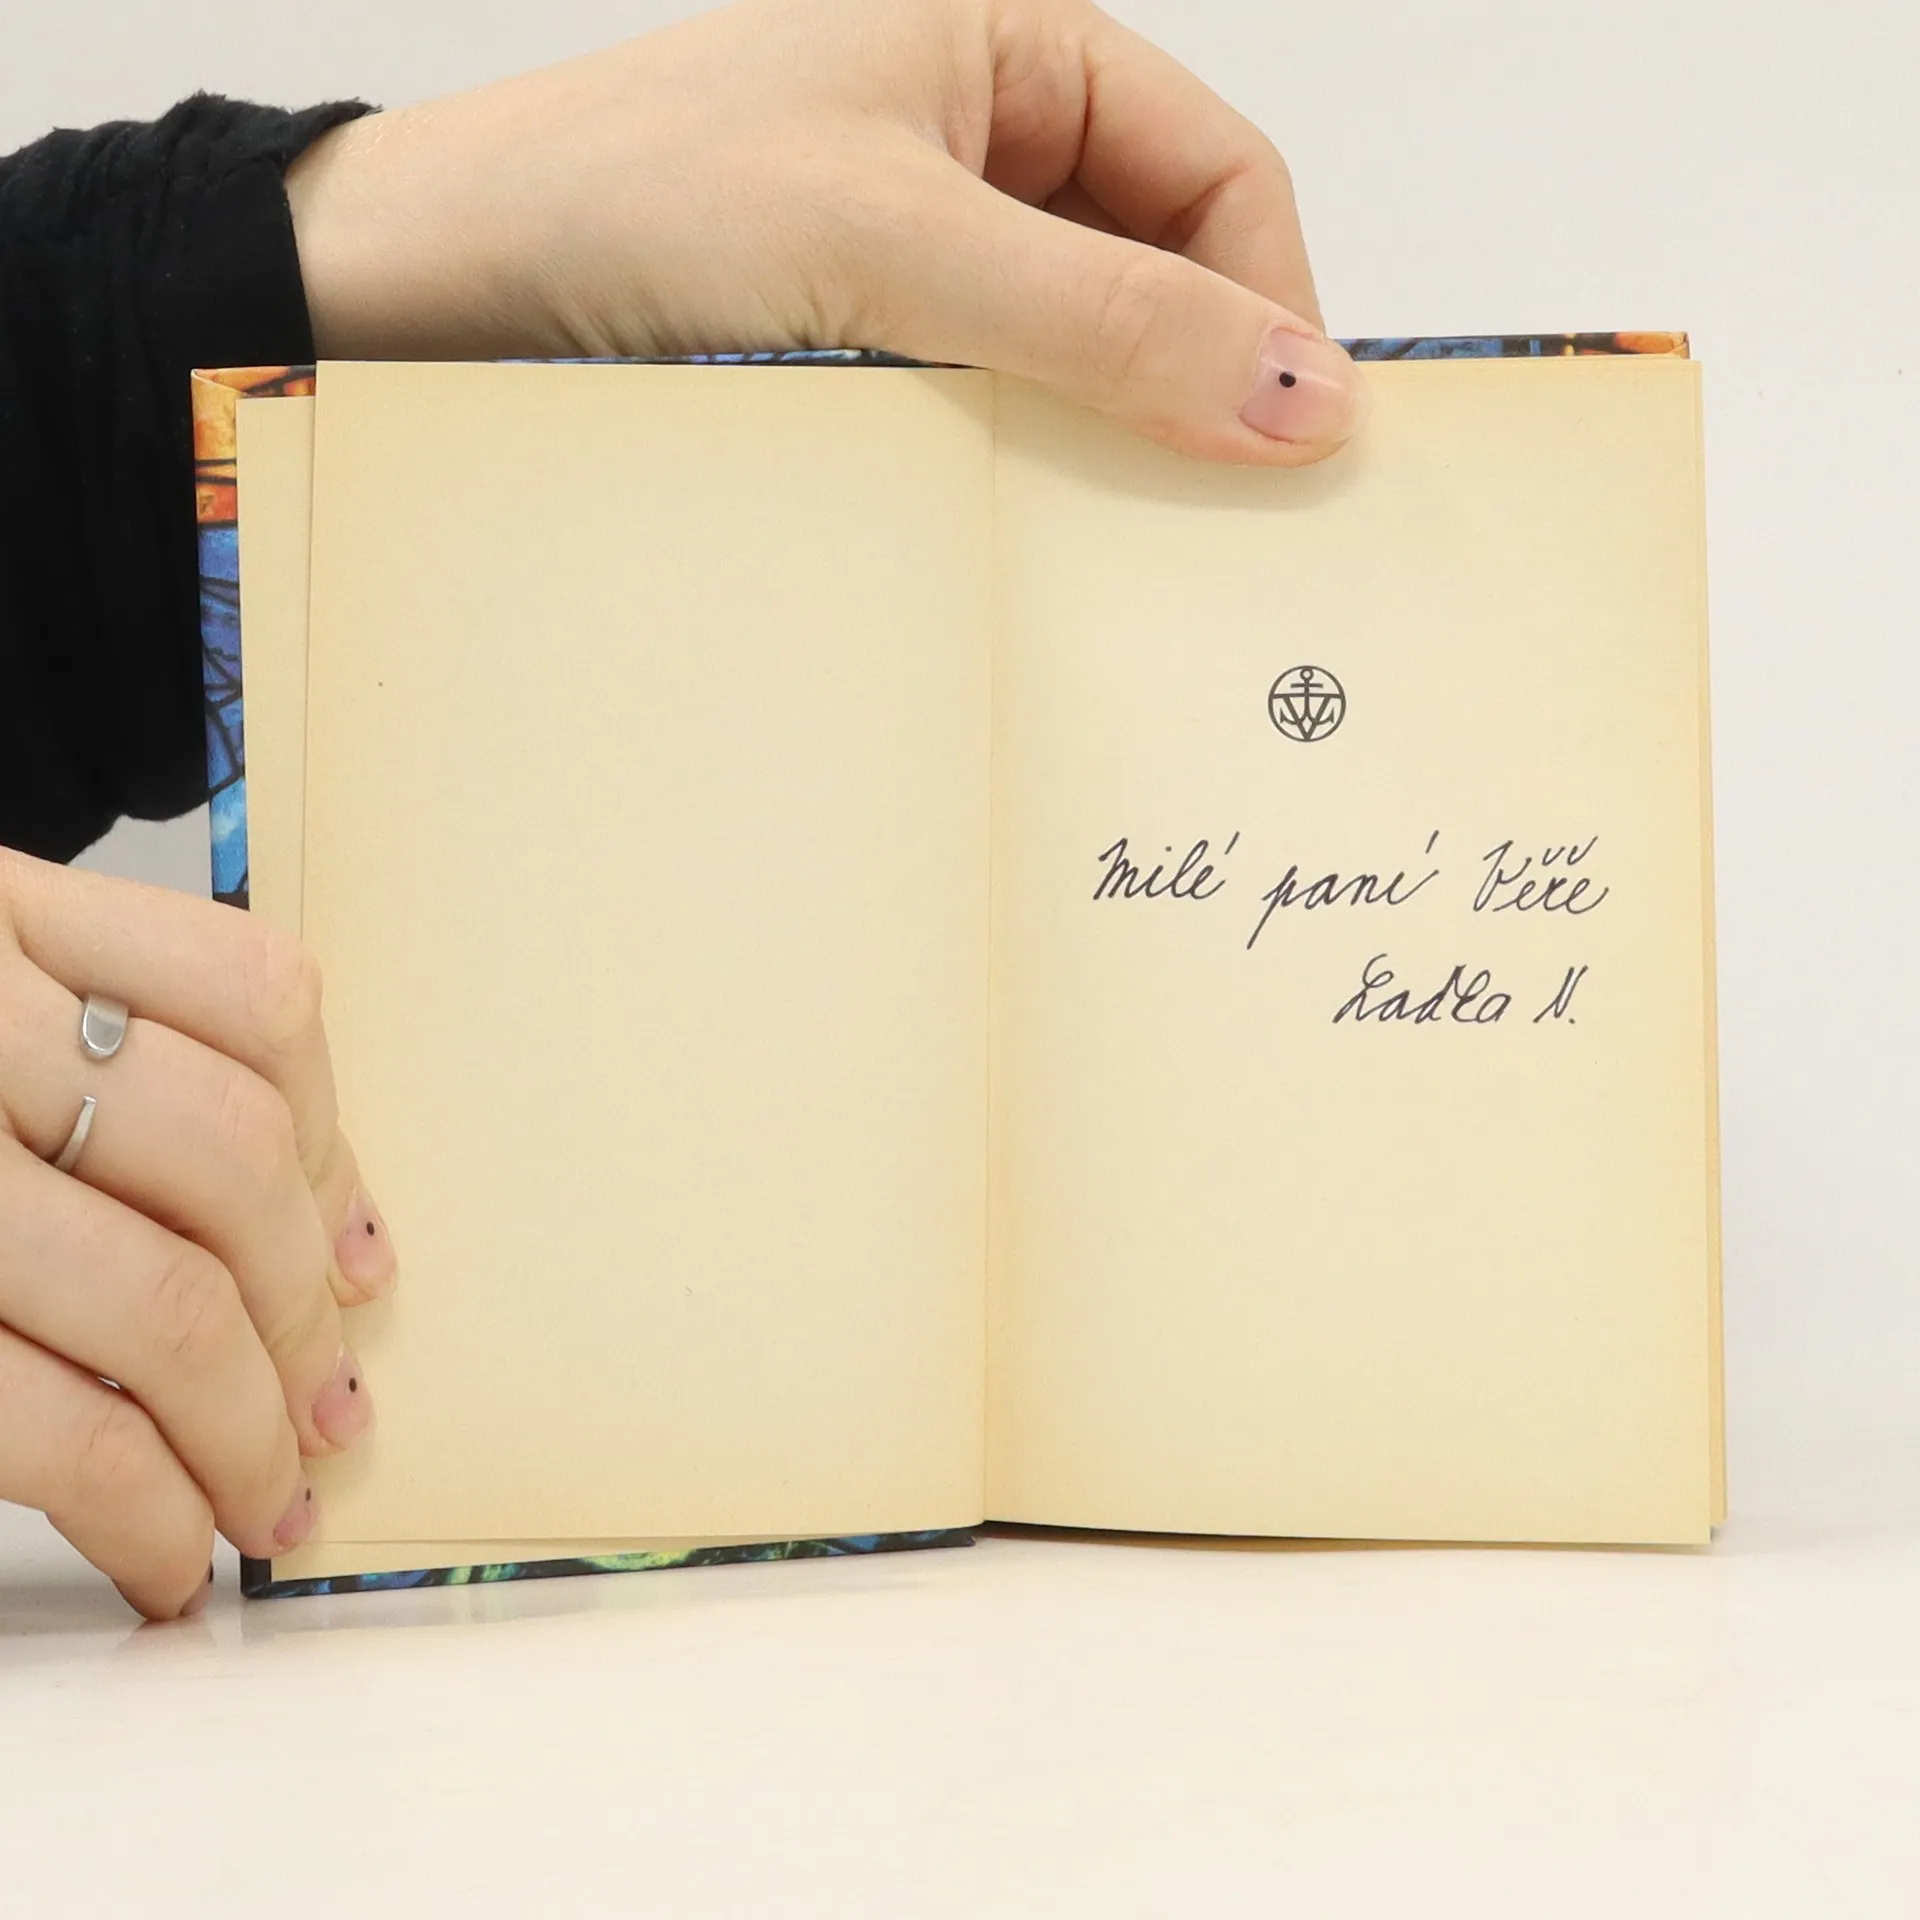 Milé paní Věře
Laďka N.